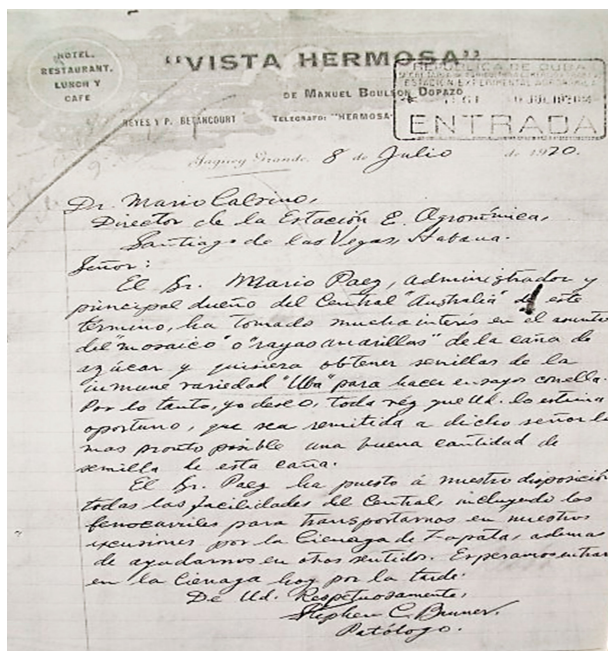 HOTEL.
RESTAURANT.
LUNCH Y
CAFE
"VISTA HERMOSA"
DE MANUEL BOULSON DOPAZO
REYES Y P. BETANCOURT TELEGRAFO: "HERMOSA"
REPUBLICA DE CUBA
ESTACION EXPERIMENTAL AGRONOMICA
JUL
ENTRADA
Jaguey Grande, 8 de Julio de 1920.
Dr. Mario Calvino,
Director de la Estación E. Agronómica,
Santiago de las Vegas, Habana.
Señor:
El Sr. Mario Paez, administrador y
principal dueño del Central "Australia" de este
termino, ha tomado mucha interés en el asunto
del "mosaico" o "rayas amarillas" de la caña de
azúcar y quisiera obtener semillas de la
inmune variedad "Uba" para hacer ensayos con ella.
Por lo tanto, yo deseo, toda vez que Ud. lo estima
oportuno, que sea remitida a dicho señor lo
mas pronto posible una buena cantidad de
semilla de esta caña.
El Sr. Paez ha puesto á nuestro disposición
todas las facilidades del Central, incluyendo los
ferrocarriles para transportarnos en nuestros
excusiones por la Cienaga de Zapata, ademas
de ayudarnos en otros sentidos. Esperamos entrar
en la Cienaga hoy por la tarde.
De Ud. Respetuosamente,
Stephen C. Bruner.
Patólogo.